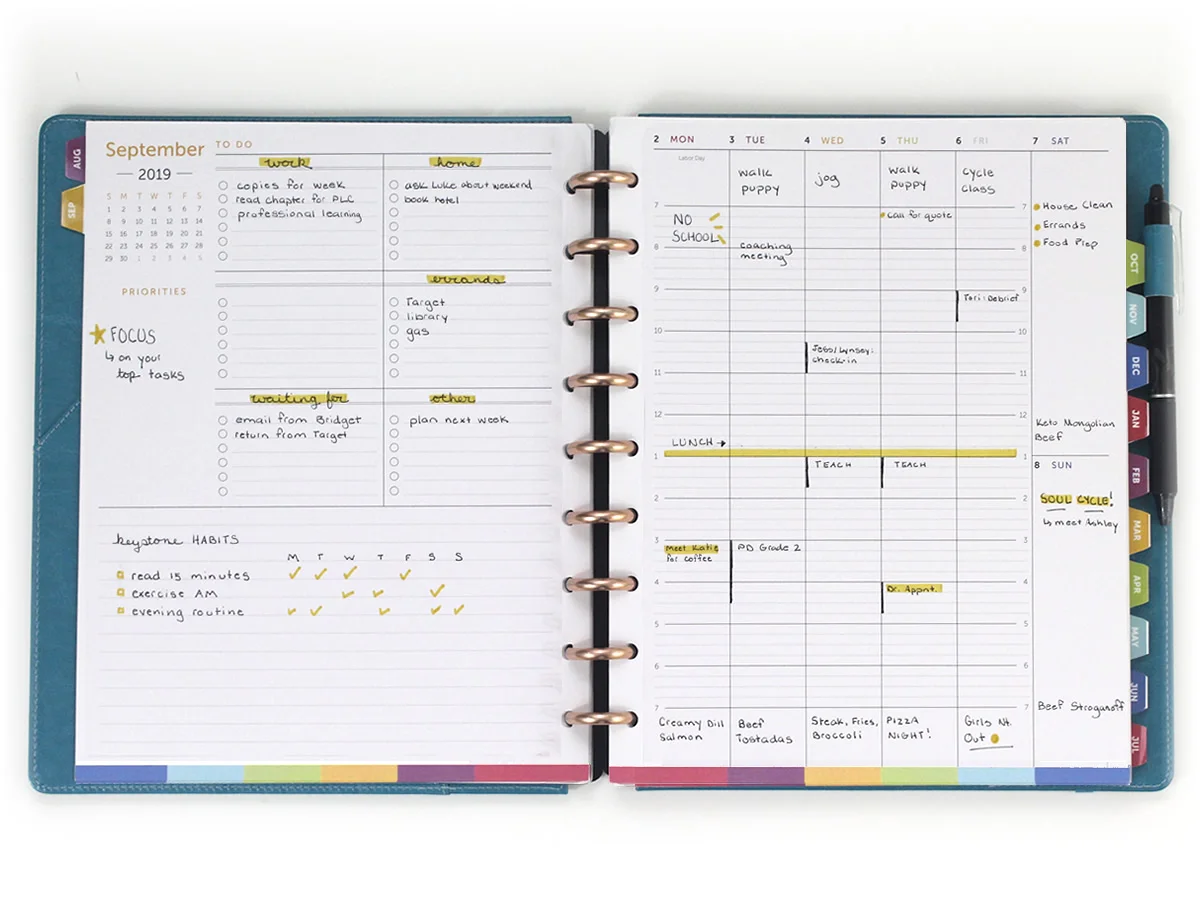 AUG
SEP
September
2019
S M T W T F S
1 2 3 4 5 6 7
8 9 10 11 12 13 14
15 16 17 18 19 20 21
22 23 24 25 26 27 28
29 30 1 2 3 4 5
PRIORITIES
FOCUS
↳ on your
top tasks
TO DO
work
copies for week
read chapter for PLC
professional learning
home
ask Luke about weekend
book hotel
errands
Target
library
gas
waiting for
email from Bridget
return from Target
other
plan next week
keystone HABITS
M T W T F S S
read 15 minutes
exercise AM
evening routine
2 MON
Labor Day
NO
SCHOOL
LUNCH →
Meet Katie
for coffee
Creamy Dill
Salmon
3 TUE
walk
puppy
coaching
meeting
PD Grade 2
Beef
Tostadas
4 WED
jog
Jess/Lynsey:
check-in
TEACH
Steak, Fries,
Broccoli
5 THU
walk
puppy
call for quote
TEACH
Dr. Appnt.
PIZZA
NIGHT!
6 FRI
cycle
class
Tori: Debrief
Girls Nt.
Out
7
8
9
10
11
12
1
2
3
4
5
6
7
7
8
9
10
11
12
1
2
3
4
5
6
7
7 SAT
House Clean
Errands
Food Prep
Keto Mongolian
Beef
8 SUN
SOUL CYCLE!
↳ meet Ashley
Beef Stroganoff
OCT
NOV
DEC
JAN
FEB
MAR
APR
MAY
JUN
JUL